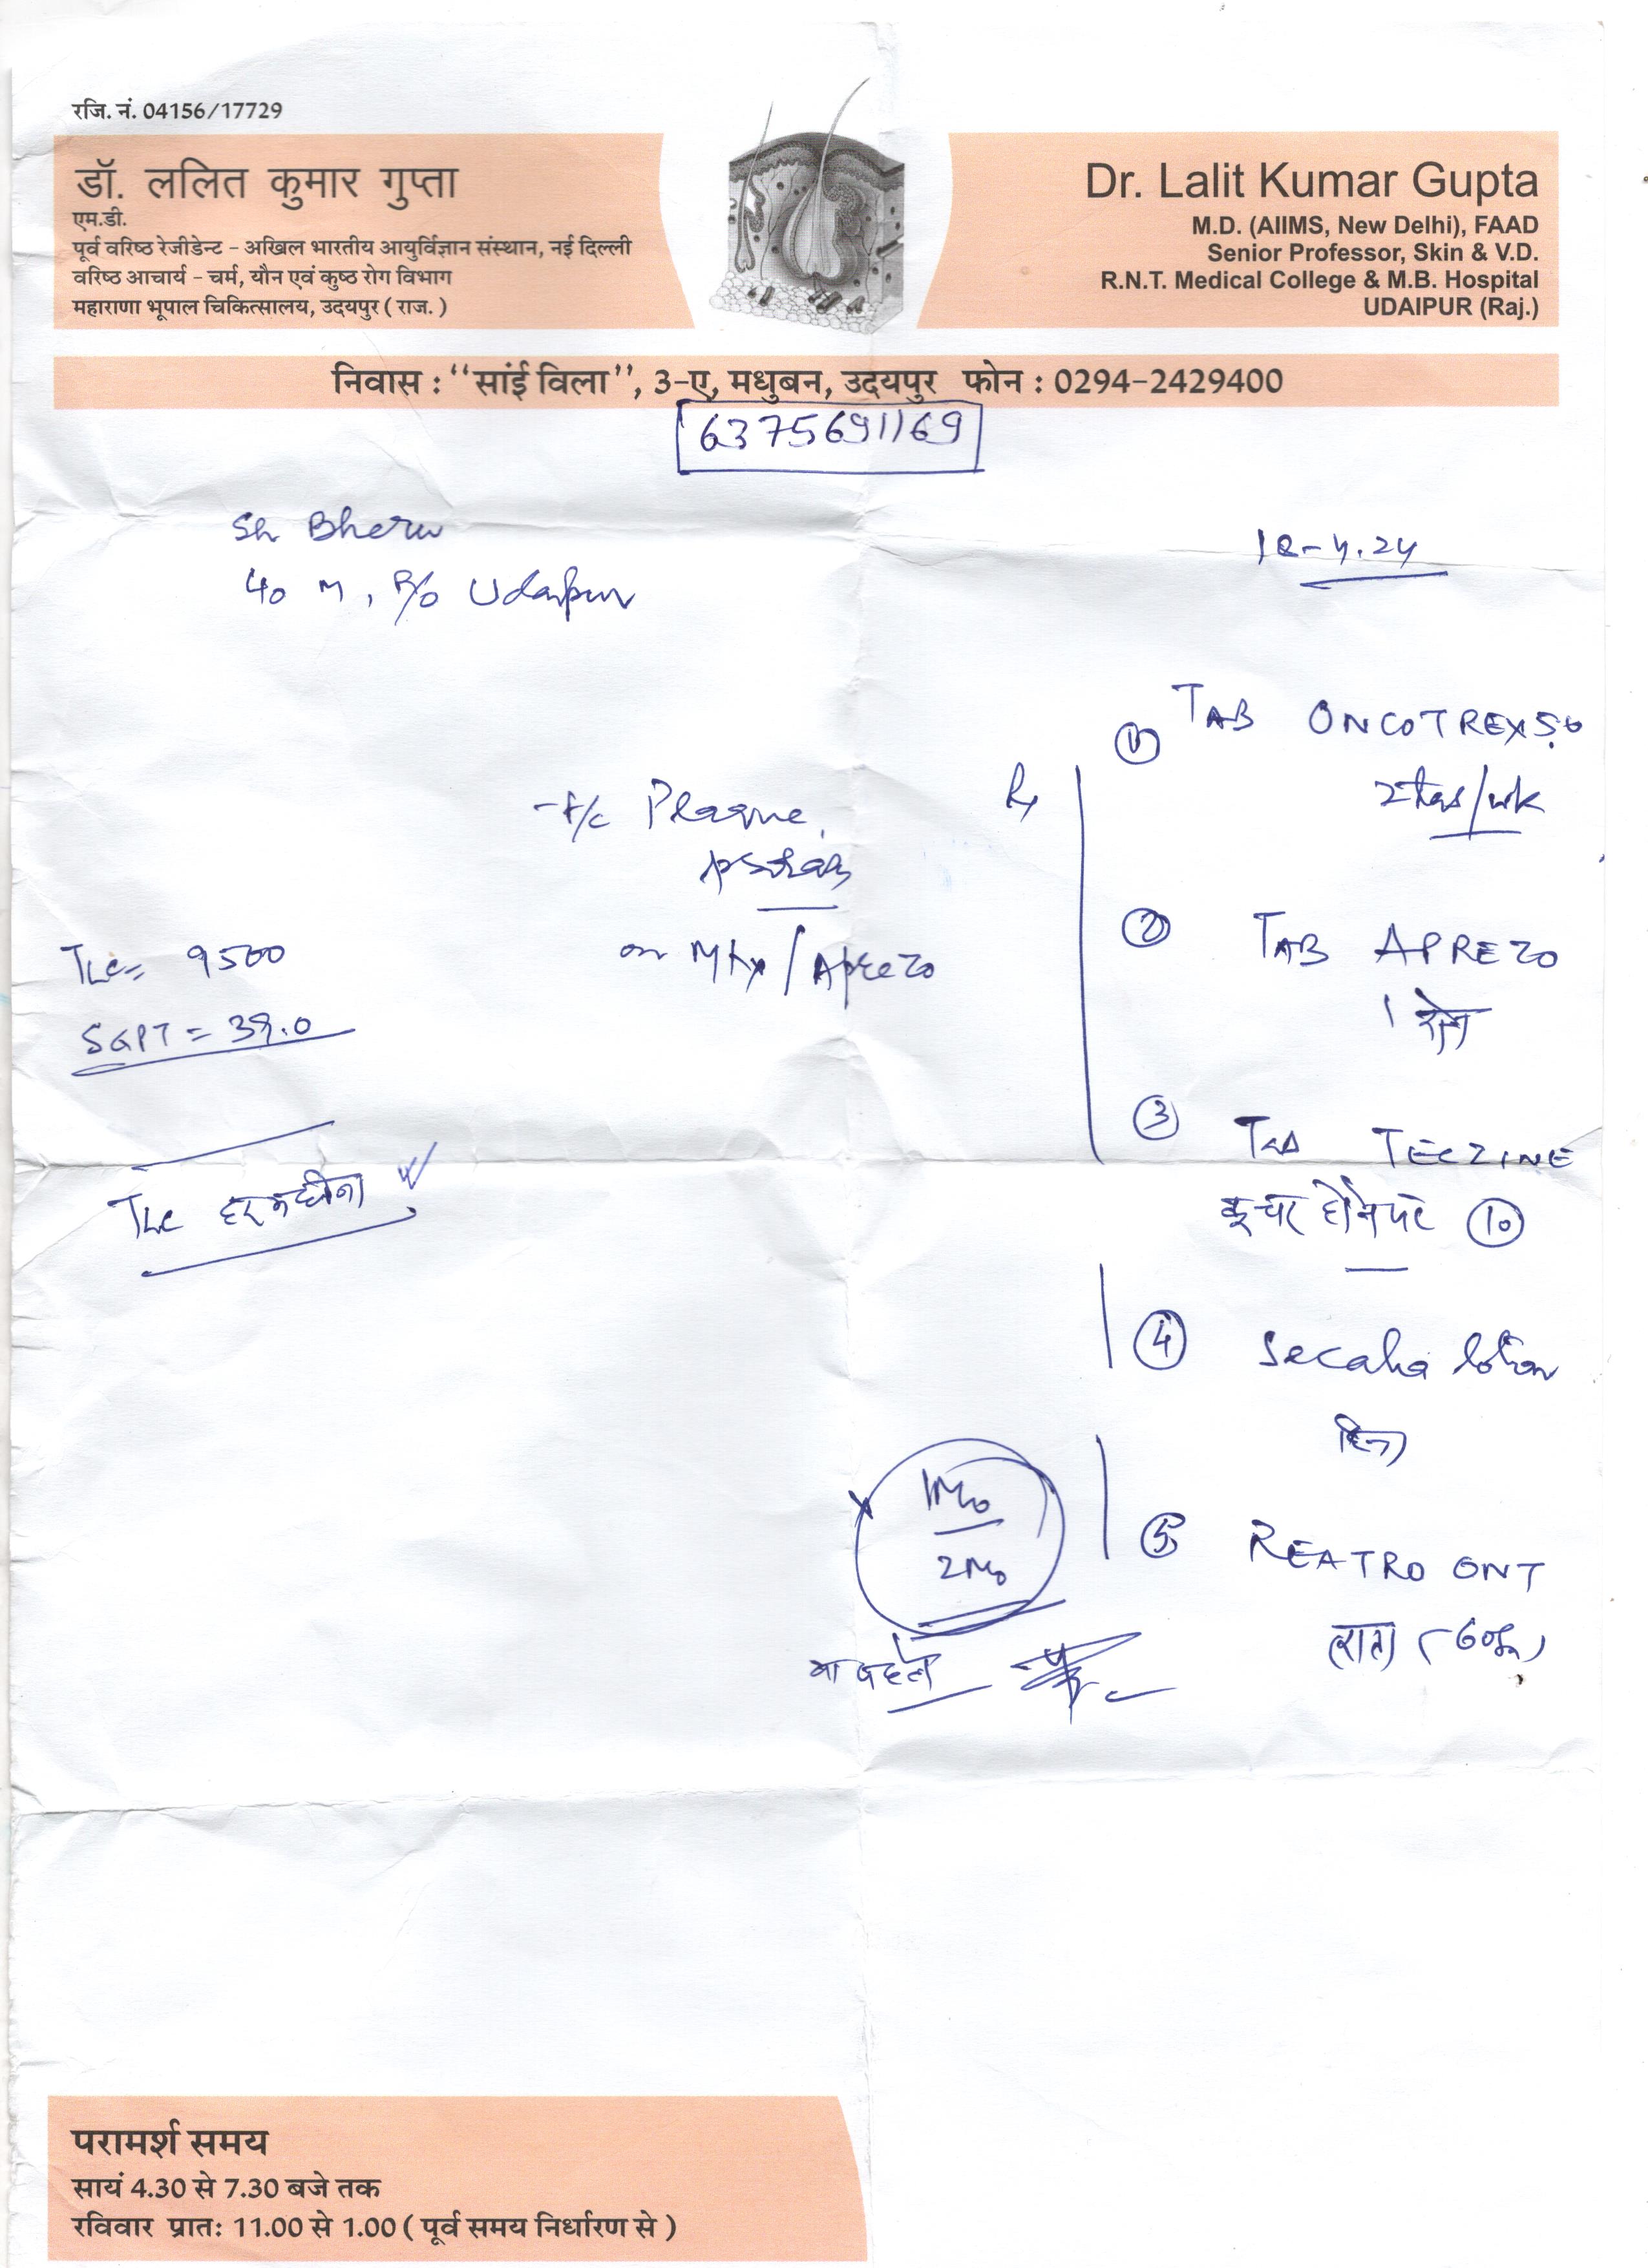 रजि. नं. 04156/17729
डॉ. ललित कुमार गुप्ता
एम.डी.
पूर्व वरिष्ठ रेजीडेन्ट - अखिल भारतीय आयुर्विज्ञान संस्थान, नई दिल्ली
वरिष्ठ आचार्य - चर्म, यौन एवं कुष्ठ रोग विभाग
महाराणा भूपाल चिकित्सालय, उदयपुर ( राज. )
Dr. Lalit Kumar Gupta
M.D. (AIIMS, New Delhi), FAAD
Senior Professor, Skin & V.D.
R.N.T. Medical College & M.B. Hospital
UDAIPUR (Raj.)
निवास : “सांई विला”, 3-ए, मधुबन, उदयपुर फोन : 0294-2429400
6375691169
Sh Bheru
40 M, R/o Udaipur
12-4.24
Plaque
psoriasis
on Mtx / Aprezo
TLC = 9500
SGPT = 39.0
TLC हर महीना
Rx
① TAB ONCOTREX 5.0
/wk
② TAB APREZO
1 रोज
③ Tab TECZINE
होने पर ⑩
④ lotion
दिन
⑤ REATRO ONT
(रात)
1Mo
2Mo
परामर्श समय
सायं 4.30 से 7.30 बजे तक
रविवार प्रातः 11.00 से 1.00 ( पूर्व समय निर्धारण से )